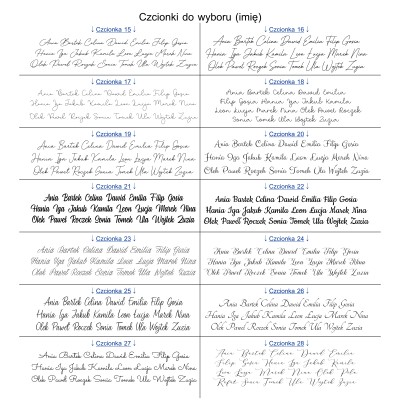 Czcionki do wyboru (imię)
↓ Czcionka 15 ↓
Ania Bartek Celina Dawid Emilia Filip Gosia
Hania Iga Jakub Kamila Leon Łucja Marek Nina
Olek Paweł Roczek Sonia Tomek Ula Wojtek Zuzia
↓ Czcionka 16 ↓
Ania Bartek Celina Dawid Emilia Filip Gosia
Hania Iga Jan Jakub Kamila Leon Łucja Marek Nina
Olek Paweł Roczek Sonia Tomek Ula Wojtek Zuzia
↓ Czcionka 17 ↓
Ania Bartek Celina Dawid Emilia Filip Gosia
Hania Iga Jakub Kamila Leon Łucja Marek Nina
Olek Paweł Roczek Sonia Tomek Ula Wojtek Zuzia
↓ Czcionka 18 ↓
Ania Bartek Celina Dawid Emilia
Filip Gosia Hania Iga Jakub Kamila
Leon Łucja Marek Nina Olek Paweł Roczek
Sonia Tomek Ula Wojtek Zuzia
↓ Czcionka 19 ↓
Ania Bartek Celina Dawid Emilia Filip Gosia
Hania Iga Jakub Kamila Leon Łucja Marek Nina
Olek Paweł Roczek Sonia Tomek Ula Wojtek Zuzia
↓ Czcionka 20 ↓
Ania Bartek Celina Dawid Emilia Filip Gosia
Hania Iga Jakub Kamila Leon Łucja Marek Nina
Olek Paweł Roczek Sonia Tomek Ula Wojtek Zuzia
↓ Czcionka 21 ↓
Ania Bartek Celina Dawid Emilia Filip Gosia
Hania Iga Jakub Kamila Leon Łucja Marek Nina
Olek Paweł Roczek Sonia Tomek Ula Wojtek Zuzia
↓ Czcionka 22 ↓
Ania Bartek Celina Dawid Emilia Filip Gosia
Hania Iga Jakub Kamila Leon Łucja Marek Nina
Olek Paweł Roczek Sonia Tomek Ula Wojtek Zuzia
↓ Czcionka 23 ↓
Ania Bartek Celina Dawid Emilia Filip Gosia
Hania Iga Jakub Kamila Leon Łucja Marek Nina
Olek Paweł Roczek Sonia Tomek Ula Wojtek Zuzia
↓ Czcionka 24 ↓
Ania Bartek Celina Dawid Emilia Filip Gosia
Hania Iga Jakub Kamila Leon Łucja Marek Nina
Olek Paweł Roczek Sonia Tomek Ula Wojtek Zuzia
↓ Czcionka 25 ↓
Ania Bartek Celina Dawid Emilia Filip Gosia
Hania Iga Jakub Kamila Leon Łucja Marek Nina
Olek Paweł Roczek Sonia Tomek Ula Wojtek Zuzia
↓ Czcionka 26 ↓
Ania Bartek Celina Dawid Emilia Filip Gosia
Hania Iga Jakub Kamila Leon Łucja Marek Nina
Olek Paweł Roczek Sonia Tomek Ula Wojtek Zuzia
↓ Czcionka 27 ↓
Ania Bartek Celina Dawid Emilia Filip Gosia
Hania Iga Jakub Kamila Leon Łucja Marek Nina
Olek Paweł Roczek Sonia Tomek Ula Wojtek Zuzia
↓ Czcionka 28 ↓
Ania Bartek Celina Dawid Emilia
Filip Gosia Hania Iga Jakub Kamila
Leon Łucja Marek Nina Olek
Sonia Tomek Ula Wojtek Zuzia